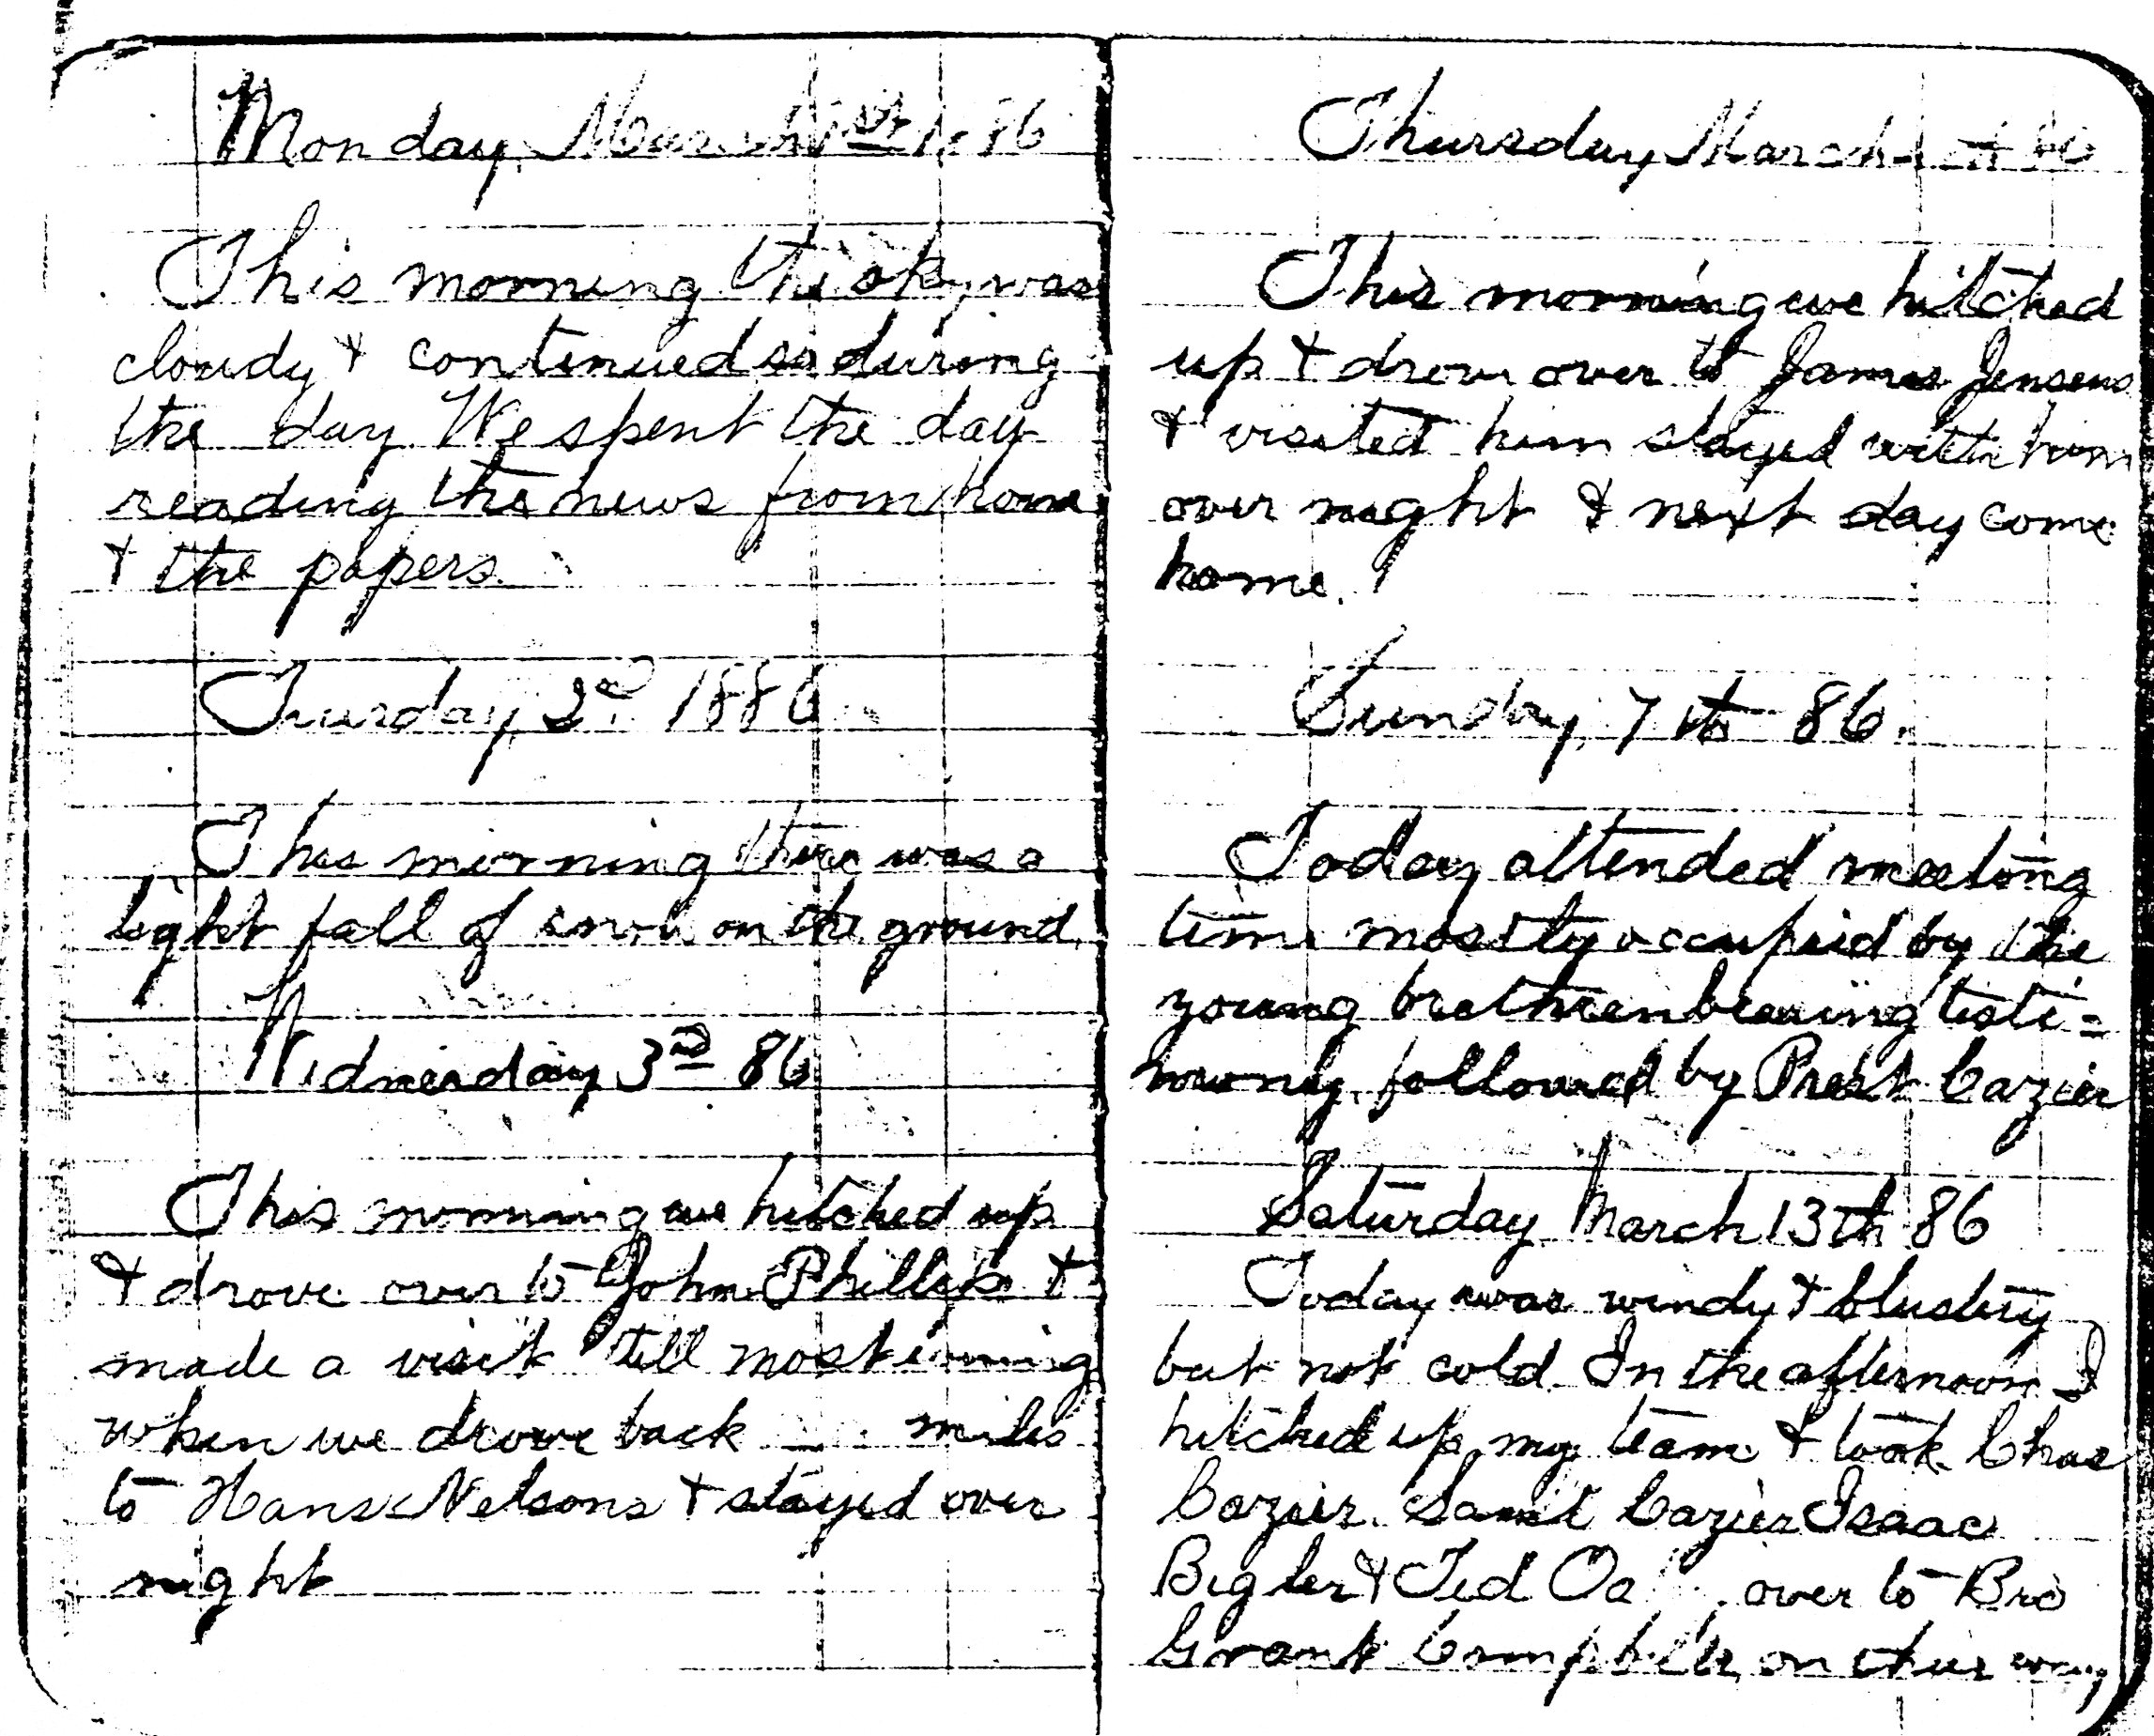 Monday, March 1st 1886
This morning the sky was
cloudy & continued so during
the day We spent the day
reading the news from home
& the papers.
Tuesday, 2nd 1886
This morning there was a
light fall of snow on the ground
Wednesday 3rd 86
This morning we hitched up
& drove over to John Phillips &
made a visit till most evening
when we drove back miles
to Hans Nelsons & stayed over
night
Thursday March
This morning we hitched
up & drove over to James Jensens
& visited him stayed with him
over night & next day come
home.
Sunday, 7th 86.
Today attended meeting
time mostly occupied by the
young brethren bearing testi=
mony followed by Prest Cazier
Saturday March 13th 86
Today was windy & blustery
but not cold. In the afternoon I
hitched up my team & took Chas
Cazier Saml Cazier Isaac
Bigler & Ted Oa over to Bro
Grant Campbells on their way